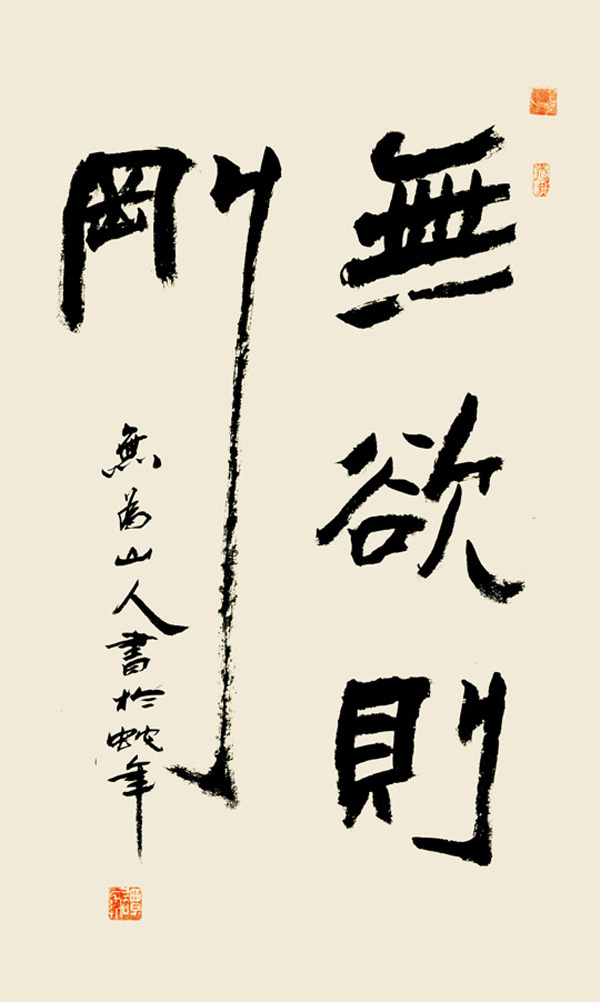 無欲則
剛
無為山人書於蛇年